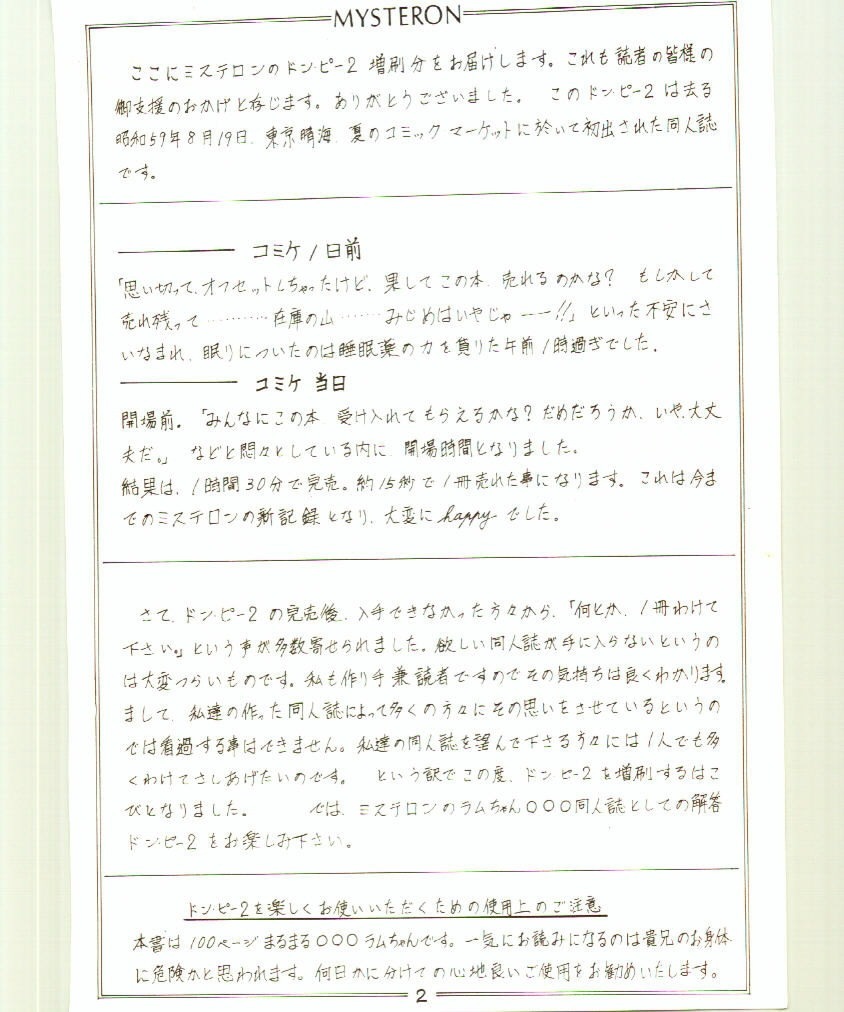 MYSTERON
ここにミステロンのドン・ピー2 増刷分をお届けします。これも読者の皆様の
御支援のおかげと存じます。ありがとうございました。 このドン・ピー2は去る
昭和59年8月19日、東京晴海、夏のコミックマーケットに於いて初出された同人誌
です。
コミケ1日前
「思い切って、オフセットしちゃったけど、果してこの本、売れるのかな? もしかして
売れ残って…………在庫の山……みじめはいやじゃーー!!」といった不安にさ
いなまれ、眠りについたのは睡眠薬の力を貸りた午前1時過ぎでした。
コミケ当日
開場前。「みんなにこの本、受け入れてもらえるかな?だめだろうか、いや、大丈
夫だ。」 などと悶々としている内に、開場時間となりました。
結果は、1時間30分で完売。約15秒で1冊売れた事になります。これは今ま
でのミステロンの新記録となり、大変にhappyでした。
さて、ドン・ピー2の完売後、入手できなかった方々から、「何とか、1冊わけて
下さい。」という事が多数寄せられました。欲しい同人誌が手に入らないというの
は大変つらいものです。私も作り手兼読者ですのでその気持ちは良くわかります。
まして、私達の作った同人誌によって多くの方々にその思いをさせているというの
では看過する事はできません。私達の同人誌を望んで下さる方々には1人でも多
くわけてさしあげたいのです。 という訳でこの度、ドン・ピー2を増刷するはこ
びとなりました。 では、ミステロンのラムちゃん〇〇〇同人誌としての解答
ドン・ピー2をお楽しみ下さい。
ドン・ピー2を楽しくお使いいただくための使用上のご注意
本書は100ページまるまる〇〇〇ラムちゃんです。一気にお読みになるのは貴兄のお身体
に危険かと思われます。何日かに分けての心地良いご使用をお勧めいたします。
2